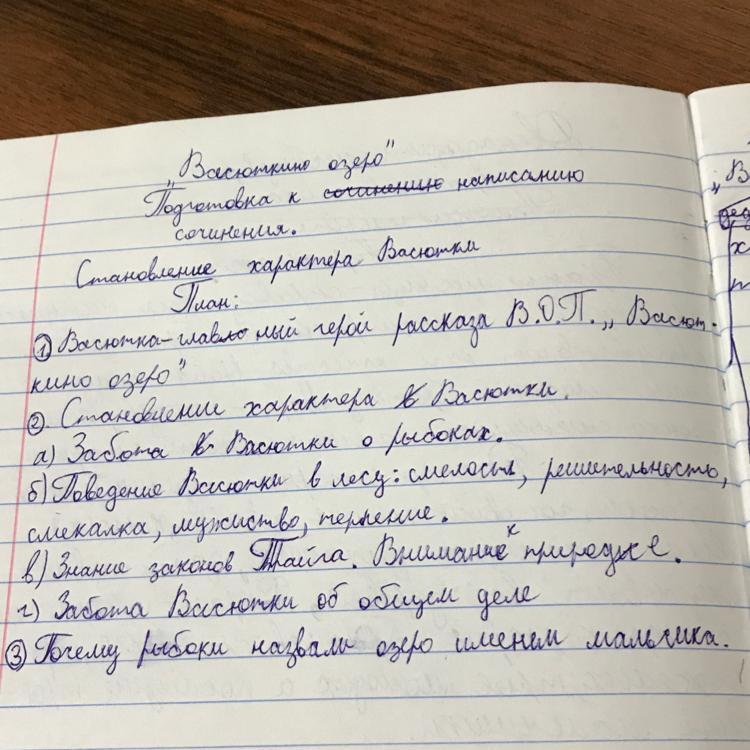 „Васюткино озеро"
Подготовка к сочинению написанию
сочинения.
Становление характера Васютки
План:
① Васютка-главло ный герой рассказа В.О.П. „Васют-
кино озеро"
②. Становление характера в Васютки.
а) Забота в Васютки о рыбоках.
б) Поведение Васютки в лесу: смелость, решительность,
смекалка, мужиство, терпение.
в) Знание законов Тайга. Внимание к природже.
г) Забота Васютки об общем деле
③ Почему рыбоки назвали озеро именем мальчика.
„В